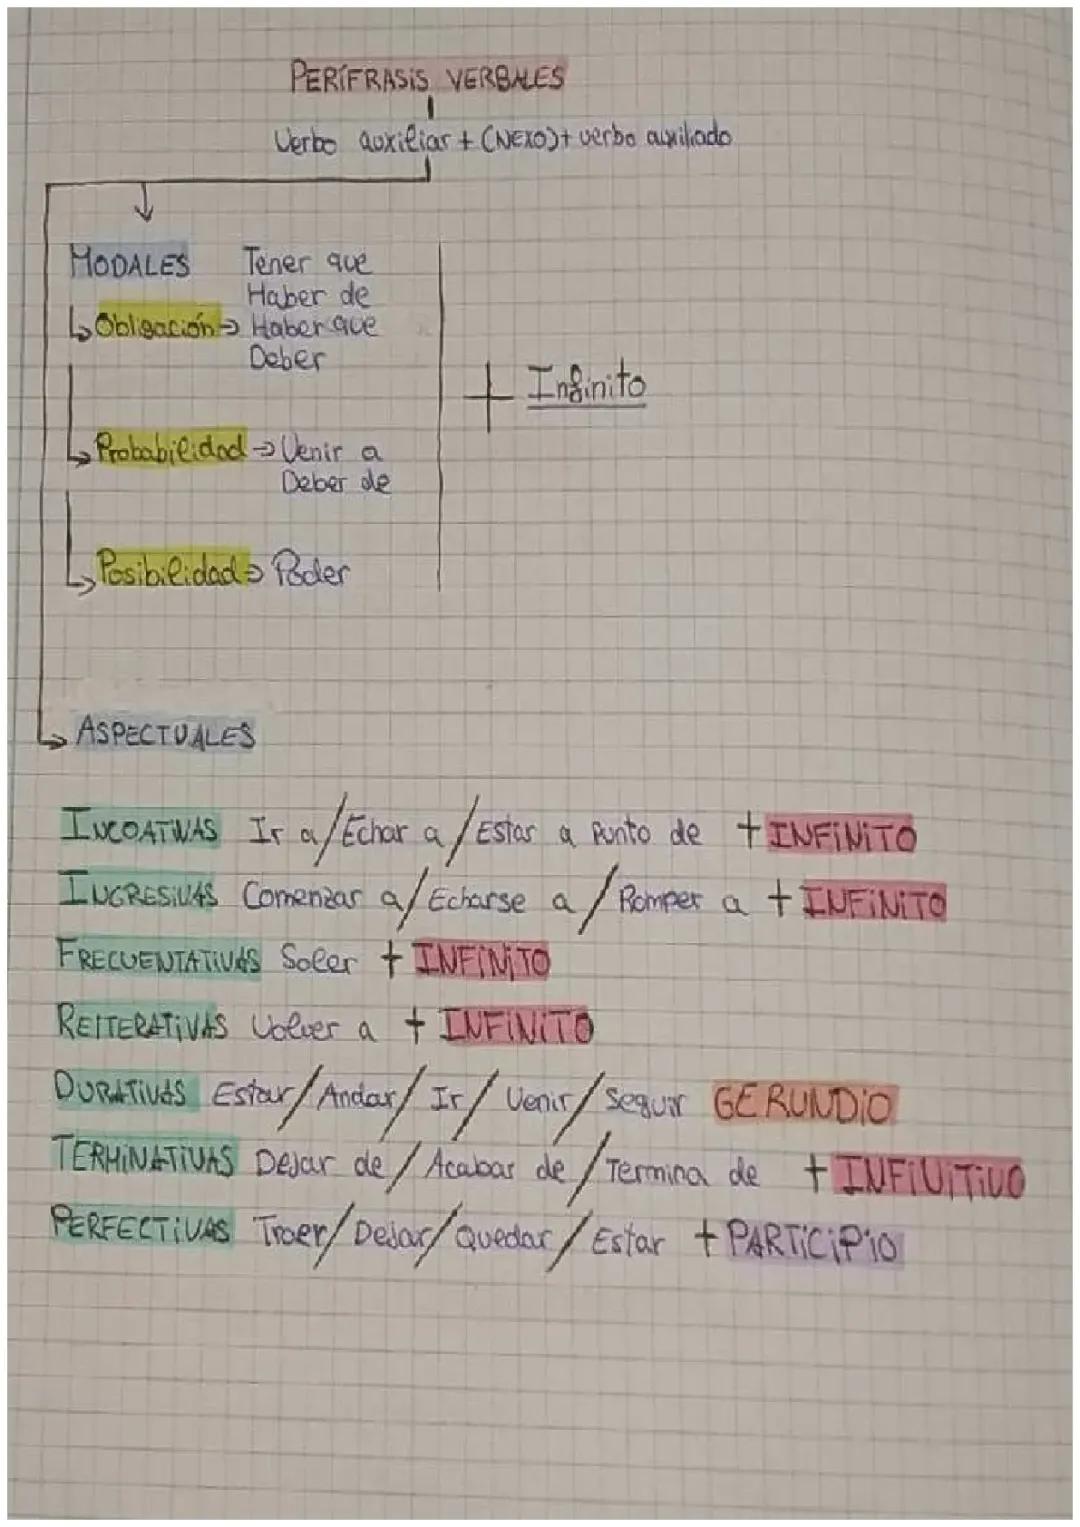 PERÍFRASIS VERBALES
Verbo auxiliar + (NEXO) + verbo auxiliado
MODALES Tener que
Haber de
Obligación → Haber que
Deber
+ Infinito
Probabilidad → Venir a
Deber de
Posibilidad → Poder
ASPECTUALES
INCOATIVAS Ir a / Echar a / Estar a punto de + INFINITO
INGRESIVAS Comenzar a / Echarse a / Romper a + INFINITO
FRECUENTATIVAS Soler + INFINITO
REITERATIVAS Volver a + INFINITO
DURATIVAS Estar / Andar / Ir / Venir / Seguir GERUNDIO
TERMINATIVAS Dejar de / Acabar de / Termina de + INFINITIVO
PERFECTIVAS Traer / Dejar / Quedar / Estar + PARTICIPIO